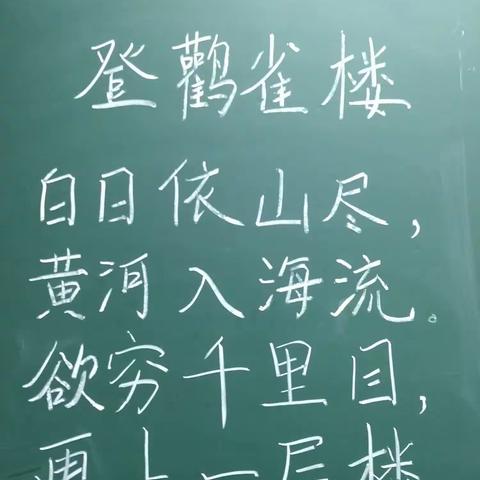 登鹳雀楼
白日依山尽，
黄河入海流。
欲穷千里目，
更上一层楼